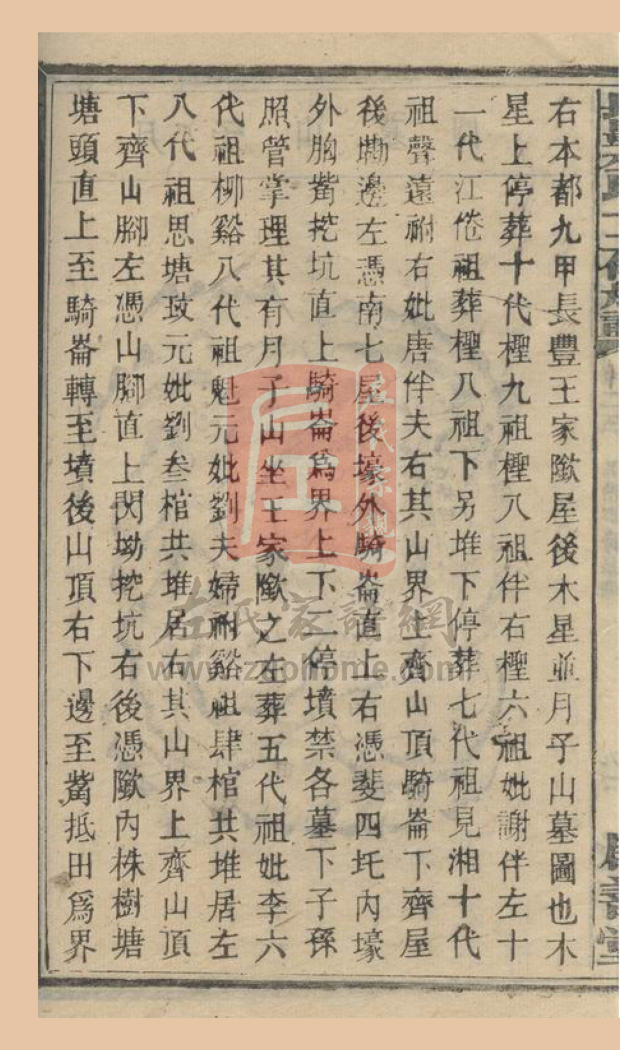 右本都九甲長豐王家歟屋後木星並月子山墓圖也木
星上停葬十代檉九祖檉八祖伴右檉六祖妣謝伴左十
一代江倦祖葬檉八祖下另堆下停葬七代祖見湘十代
祖聲遠祔右妣唐伴夫右其山界上齊山頂騎崙下齊屋
後墈邊左憑南七屋後壕外騎崙直上右憑斐四圫內壕
外胸觜挖坑直上騎崙爲界上下二停墳禁各墓下子孫
照管掌理其有月子山坐王家歟之左葬五代祖妣李六
代祖柳谿八代祖魁元妣劉夫婦祔谿祖肆棺共堆居左
八代祖思塘玫元妣劉叁棺共堆居右其山界上齊山頂
下齊山腳左憑山腳直上閃坳挖坑右後憑歟內株樹塘
塘頭直上至騎崙轉至墳後山頂右下邊至觜抵田爲界
左氏家譜網
www.zuohome.com